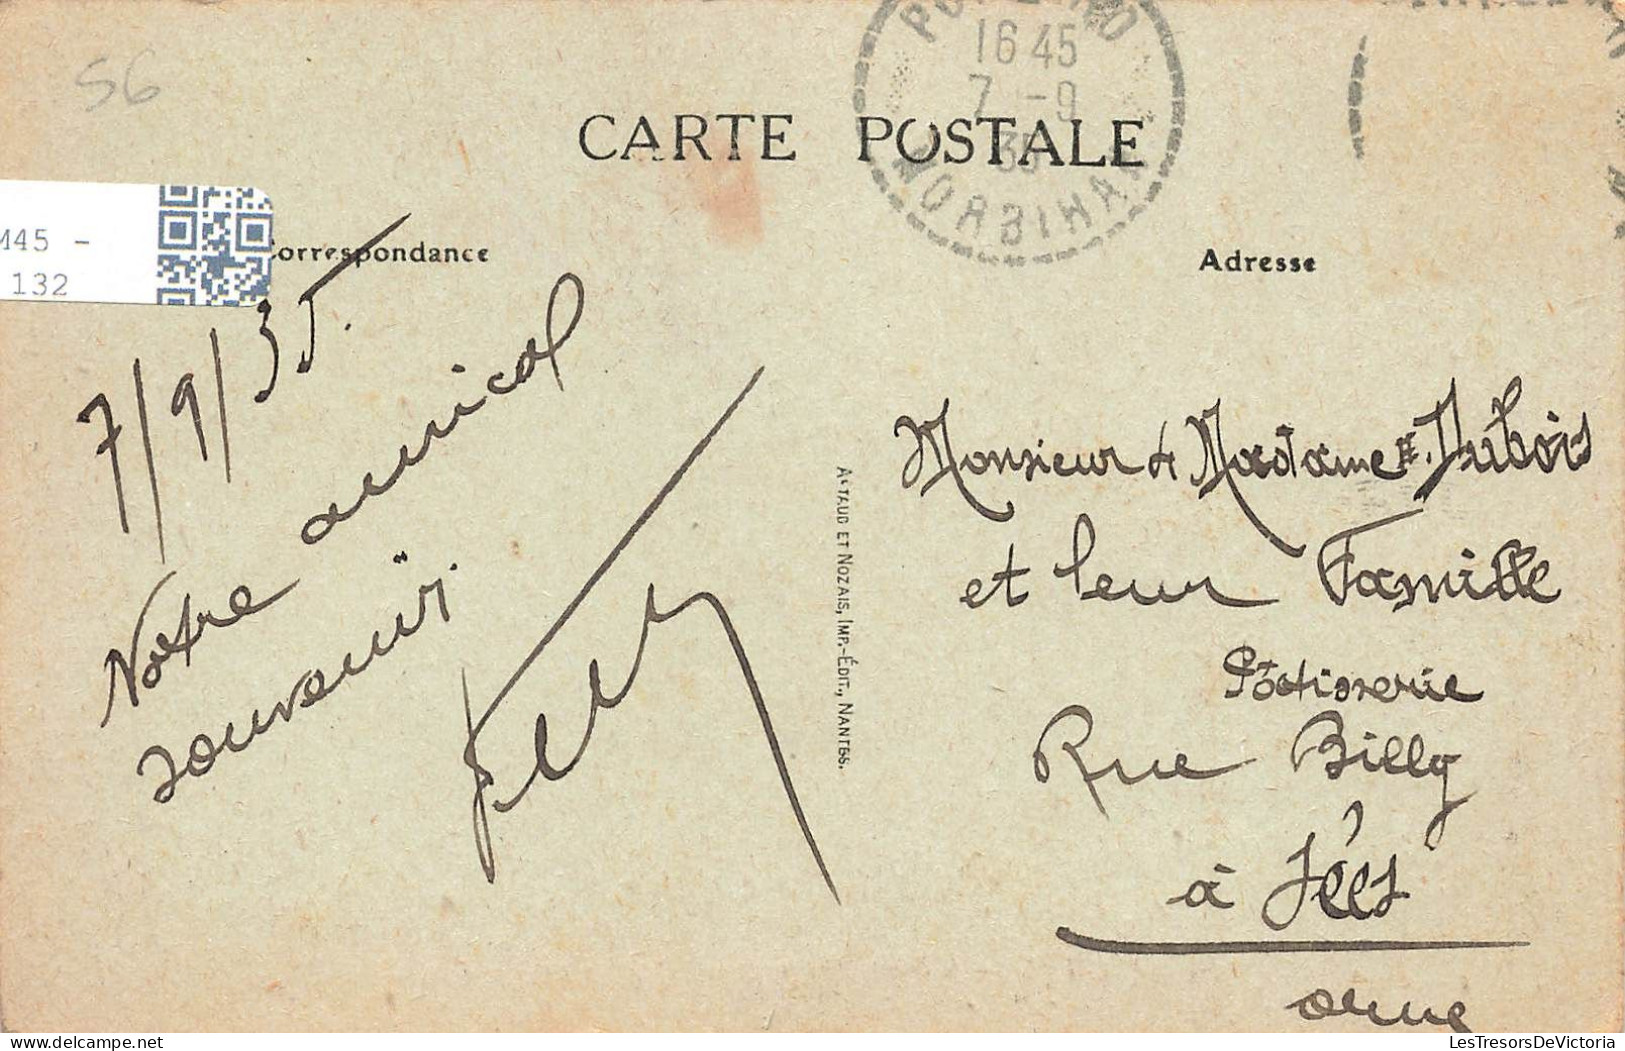 56
CARTE POSTALE
16 45
7 -9
35
MORBIHAN
M45 -
132
Correspondance
Adresse
7/9/35.
Notre amical
souvenir.
Monsieur & Madame Dubois
et leur Famille
Pâtisserie
Rue Billy
à Sées
Orne
ARTAUD ET NOZAIS, IMP.-ÉDIT., NANTES.
LesTresorsDeVictoria